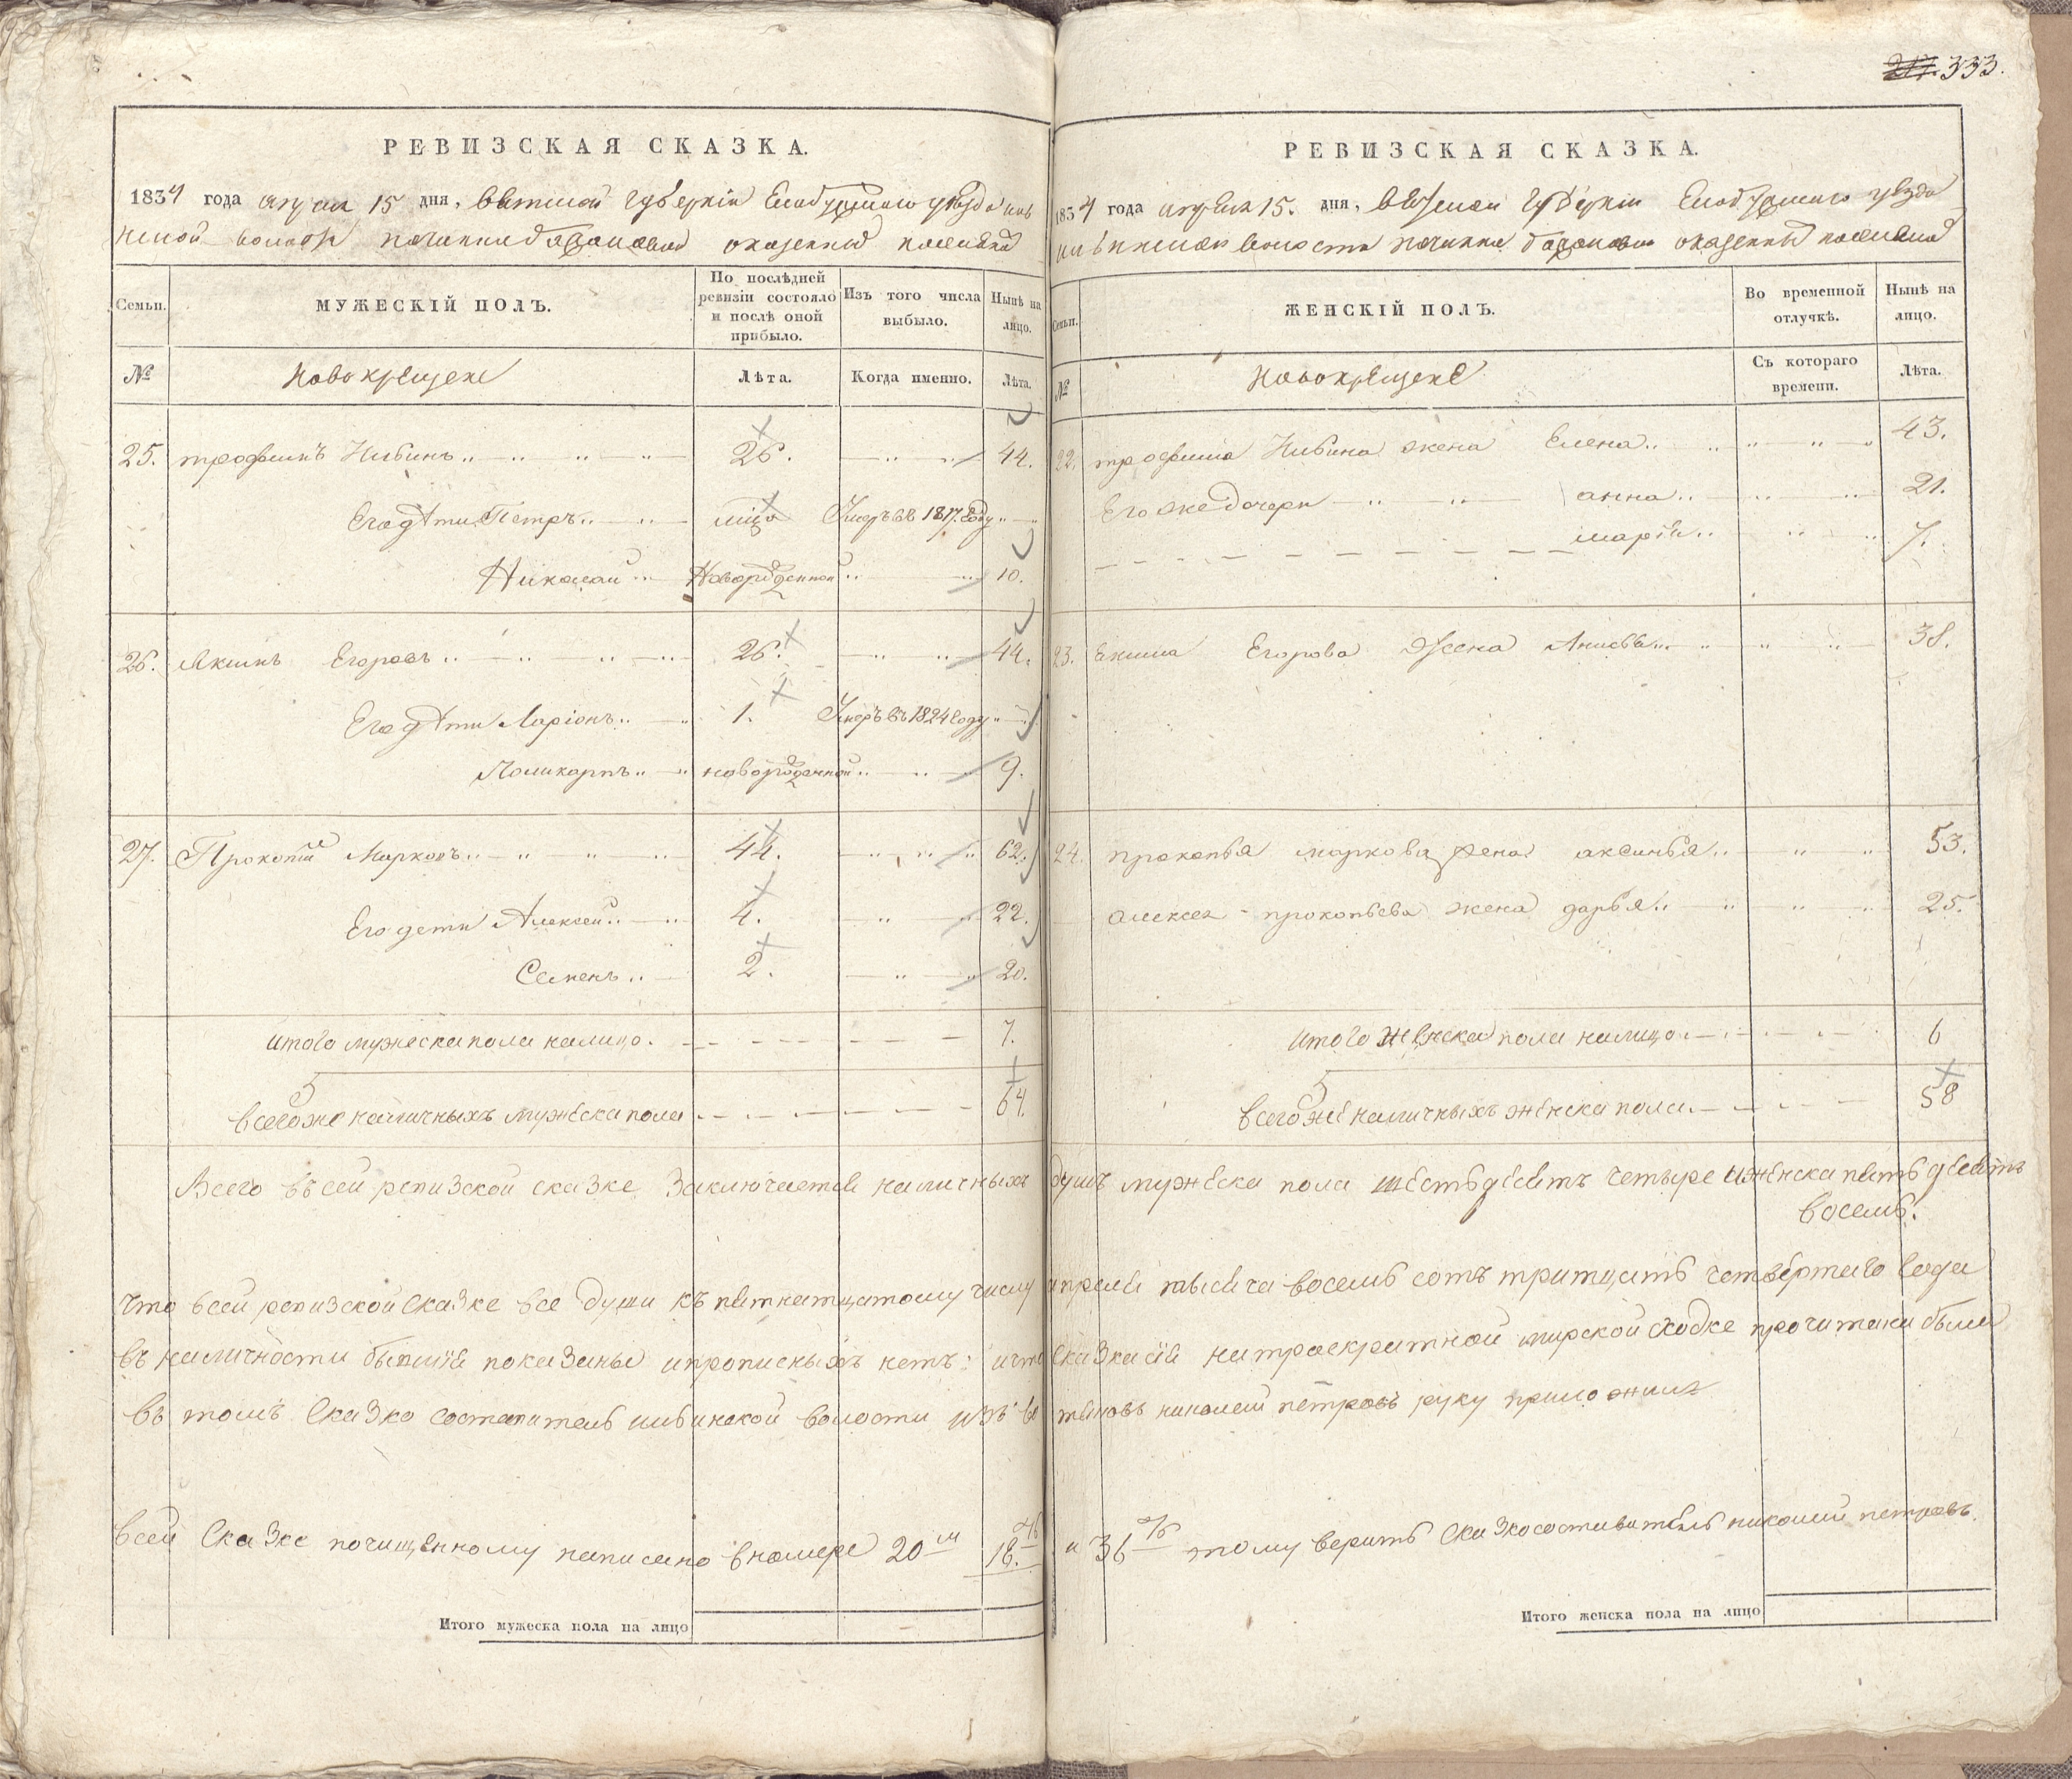 333.
РЕВИЗСКАЯ СКАЗКА.
1834 года апреля 15 дня, вятской губерніи Елабужского уезда
волости починка казенныхъ
Семьи.
МУЖЕСКІЙ ПОЛЪ.
По послѣдней ревизіи состояло и послѣ оной прибыло.
Изъ того числа выбыло.
Нынѣ на лицо.
№
Новокрещене
Лѣта.
Когда именно.
Лѣта.
25. трофимъ 26. 44.
Его дѣти Петръ Умеръ въ 1817 году
Николай Новорожденной 10.
26. Якимъ Егоровъ 26. 44.
Его дѣти Ларіонъ 1. Умеръ въ 1824 году
Поликарпъ новорожденной 9.
27. Прокопій Марковъ 44. 62.
Его дети Алексей 4. 22.
Семенъ 2. 20.
итого мужеска пола налицо. 7.
всего же наличныхъ мужеска пола 64.
РЕВИЗСКАЯ СКАЗКА.
1834 года апреля 15. дня, вятской губерніи Елабужского уезда
волости починка казенныхъ
Семьи.
ЖЕНСКІЙ ПОЛЪ.
Во временной отлучкѣ.
Нынѣ на лицо.
№
Новокрещене
Съ котораго времени.
Лѣта.
22. трофима жена Елена 43.
Его же дочери анна 21.
марія 7.
23. Екима Егорова жена 38.
24. прокопья маркова жена аксинья 53.
алексея прокопьева жена дарья 25.
итого женска пола налицо 6
всего же наличныхъ женска пола 58
Всего въ сей ревизской сказке заключается наличныхъ душъ мужеска пола шестьдесятъ четыре и женска пятьдесятъ
восемь.
что в сей ревизской сказке все души къ пятнатцатому числу апреля тысяча восемь сотъ тритцать четвертаго года
въ наличности бывшія показаны и прописныхъ нетъ: и что сказка сія на троекратной мирской сходке прочитана была
въ томъ сказко составитель волости николай петровъ руку приложилъ
в сей сказке почищенному написано в номере 20м 18. и 36 тому верить сказкосоставитель николай петровъ.
Итого мужеска пола на лицо
Итого женска пола на лицо